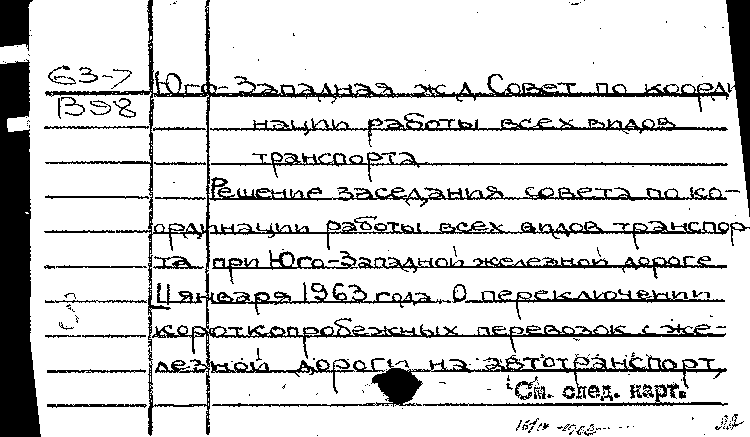 63-7
В98
Юго-Западная ж.д. Совет по коорди
нации работы всех видов
транспорта
Решение заседания совета по ко-
ординации работы всех видов транспор
та при Юго-Западной железной дороге
января 1963 года. О переключении
короткопробежных перевозок с же-
лезной дороги на автотранспорт,
См. след. карт.